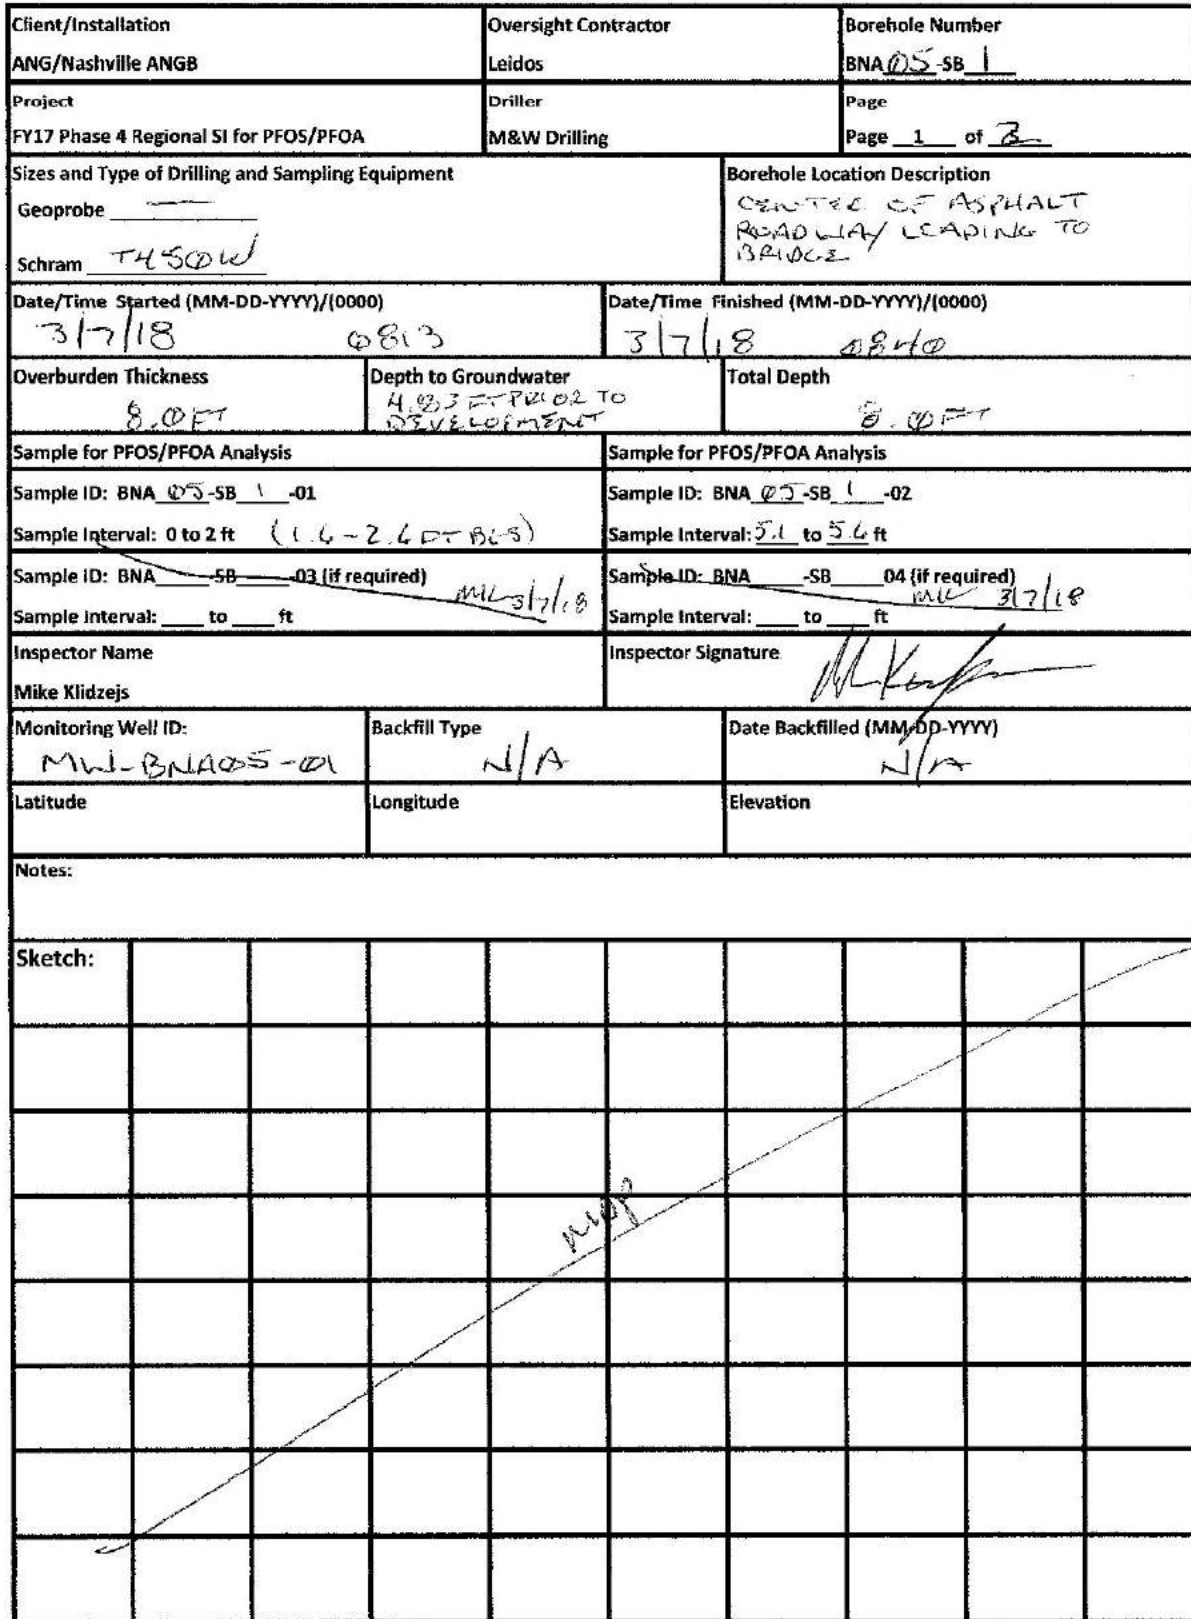 Client/Installation
ANG/Nashville ANGB
Oversight Contractor
Leidos
Borehole Number
BNA 05 -SB 1
Project
FY17 Phase 4 Regional SI for PFOS/PFOA
Driller
M&W Drilling
Page
Page 1 of
Sizes and Type of Drilling and Sampling Equipment
Geoprobe —
Schram T450W
Borehole Location Description
CENTER OF ASPHALT
ROADWAY LEADING TO
BRIDGE
Date/Time Started (MM-DD-YYYY)/(0000)
3/7/18 0813
Date/Time Finished (MM-DD-YYYY)/(0000)
3/7/18 0840
Overburden Thickness
8.0 FT
Depth to Groundwater
4.83 FT PRIOR TO
DEVELOPMENT
Total Depth
8.0 FT
Sample for PFOS/PFOA Analysis
Sample ID: BNA 05 -SB 1 -01
Sample Interval: 0 to 2 ft (1.6 - 2.6 FT BLS)
Sample for PFOS/PFOA Analysis
Sample ID: BNA 05 -SB 1 -02
Sample Interval: 5.1 to 5.6 ft
Sample ID: BNA_____-SB_____-03 (if required)
MK 3/7/18
Sample Interval: ____ to ____ ft
Sample ID: BNA_____-SB_____04 (if required)
MK 3/7/18
Sample Interval: ____ to ____ ft
Inspector Name
Mike Klidzejs
Inspector Signature
Monitoring Well ID:
MW-BNA05-01
Backfill Type
N/A
Date Backfilled (MM-DD-YYYY)
N/A
Latitude
Longitude
Elevation
Notes:
Sketch: